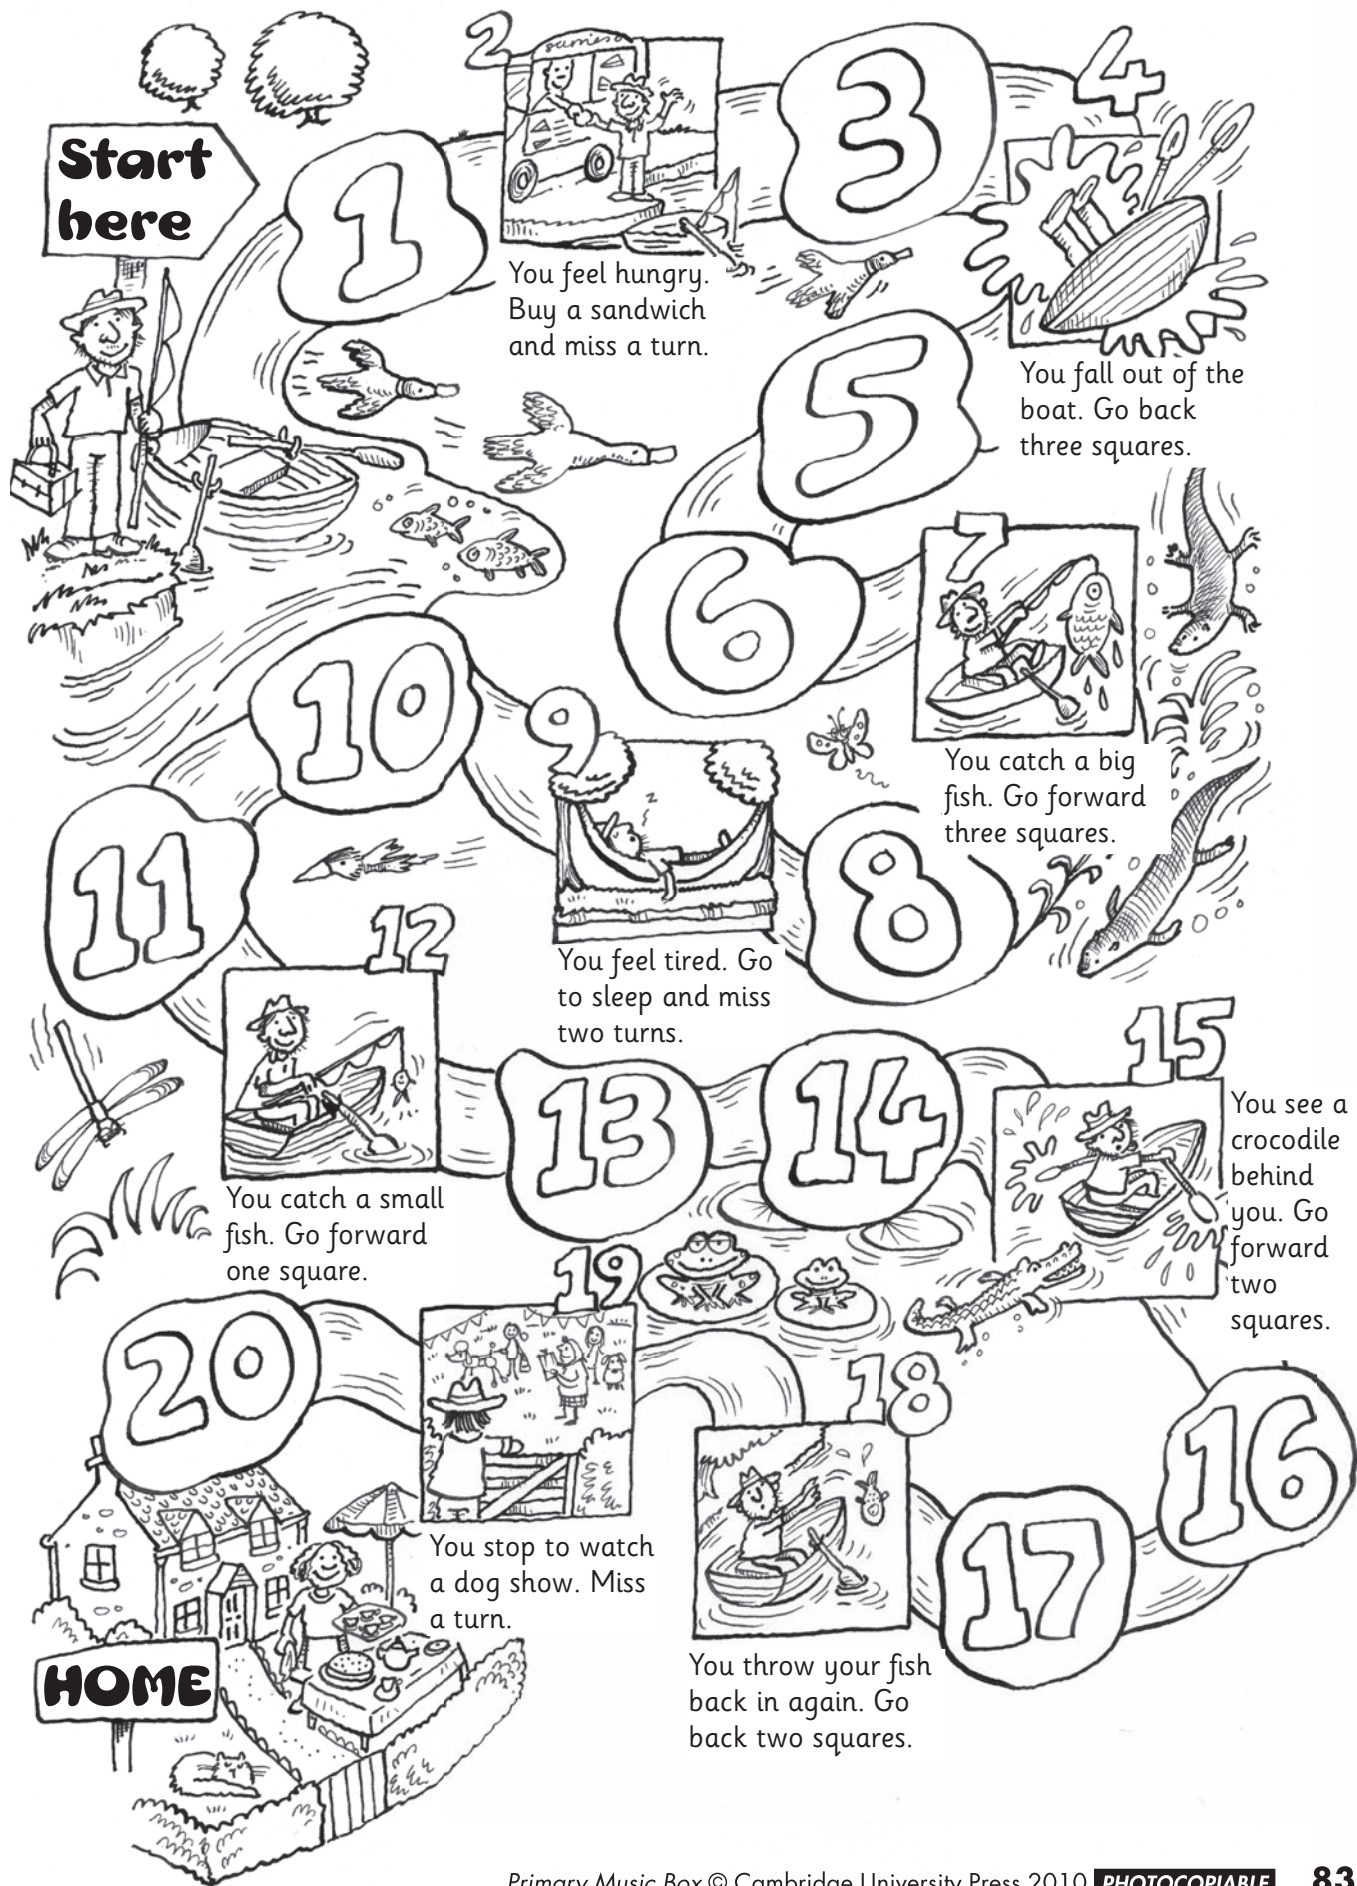 Start
here
1
2
You feel hungry.
Buy a sandwich
and miss a turn.
3
4
You fall out of the
boat. Go back
three squares.
5
6
7
You catch a big
fish. Go forward
three squares.
8
9
z
You feel tired. Go
to sleep and miss
two turns.
10
11
12
You catch a small
fish. Go forward
one square.
13
14
15
You see a
crocodile
behind
you. Go
forward
two
squares.
16
17
18
You throw your fish
back in again. Go
back two squares.
19
You stop to watch
a dog show. Miss
a turn.
20
HOME
Primary Music Box © Cambridge University Press 2010 PHOTOCOPIABLE 83